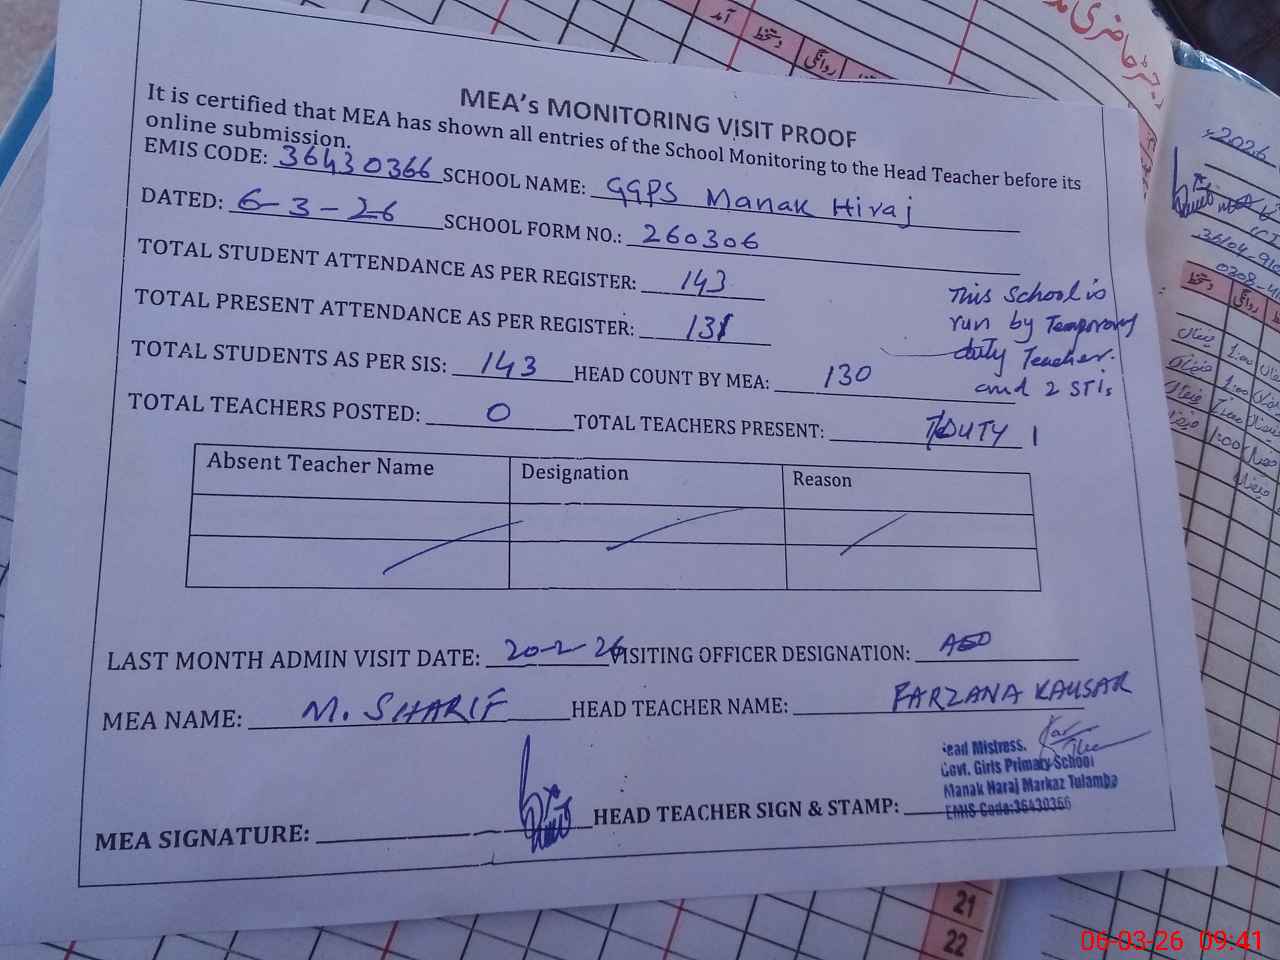 رجسٹر حاضری
آمد
دستخط
روانگی
MEA's MONITORING VISIT PROOF
It is certified that MEA has shown all entries of the School Monitoring to the Head Teacher before its
online submission.
EMIS CODE: 36430366 SCHOOL NAME: GGPS Manak Hiraj
DATED: 6-3-26 SCHOOL FORM NO.: 260306
TOTAL STUDENT ATTENDANCE AS PER REGISTER: 143
TOTAL PRESENT ATTENDANCE AS PER REGISTER: 131
TOTAL STUDENTS AS PER SIS: 143 HEAD COUNT BY MEA: 130
This School is
run by Temporary
duty Teacher.
and 2 STIs
TOTAL TEACHERS POSTED: 0 TOTAL TEACHERS PRESENT: T/DUTY 1
Absent Teacher Name Designation Reason
LAST MONTH ADMIN VISIT DATE: 20-2-26 VISITING OFFICER DESIGNATION: AEO
MEA NAME: M. SHARIF HEAD TEACHER NAME: FARZANA KAUSAR
MEA SIGNATURE: HEAD TEACHER SIGN & STAMP:
Head Mistress.
Govt. Girls Primary School
Manak Haraj Markaz Tulamba
EMIS Code:36430366
2026
دستخط
روانگی
1:00
1:00
1:00
1:00
21
22
06-03-26 09:41